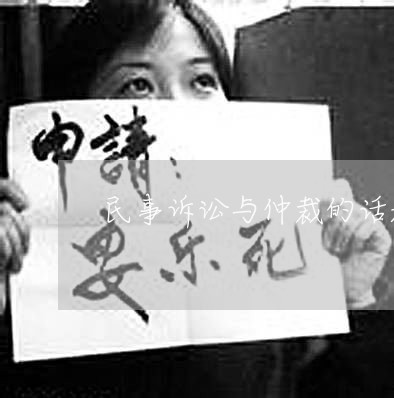 申請：
民事诉讼与仲裁的话
安乐死